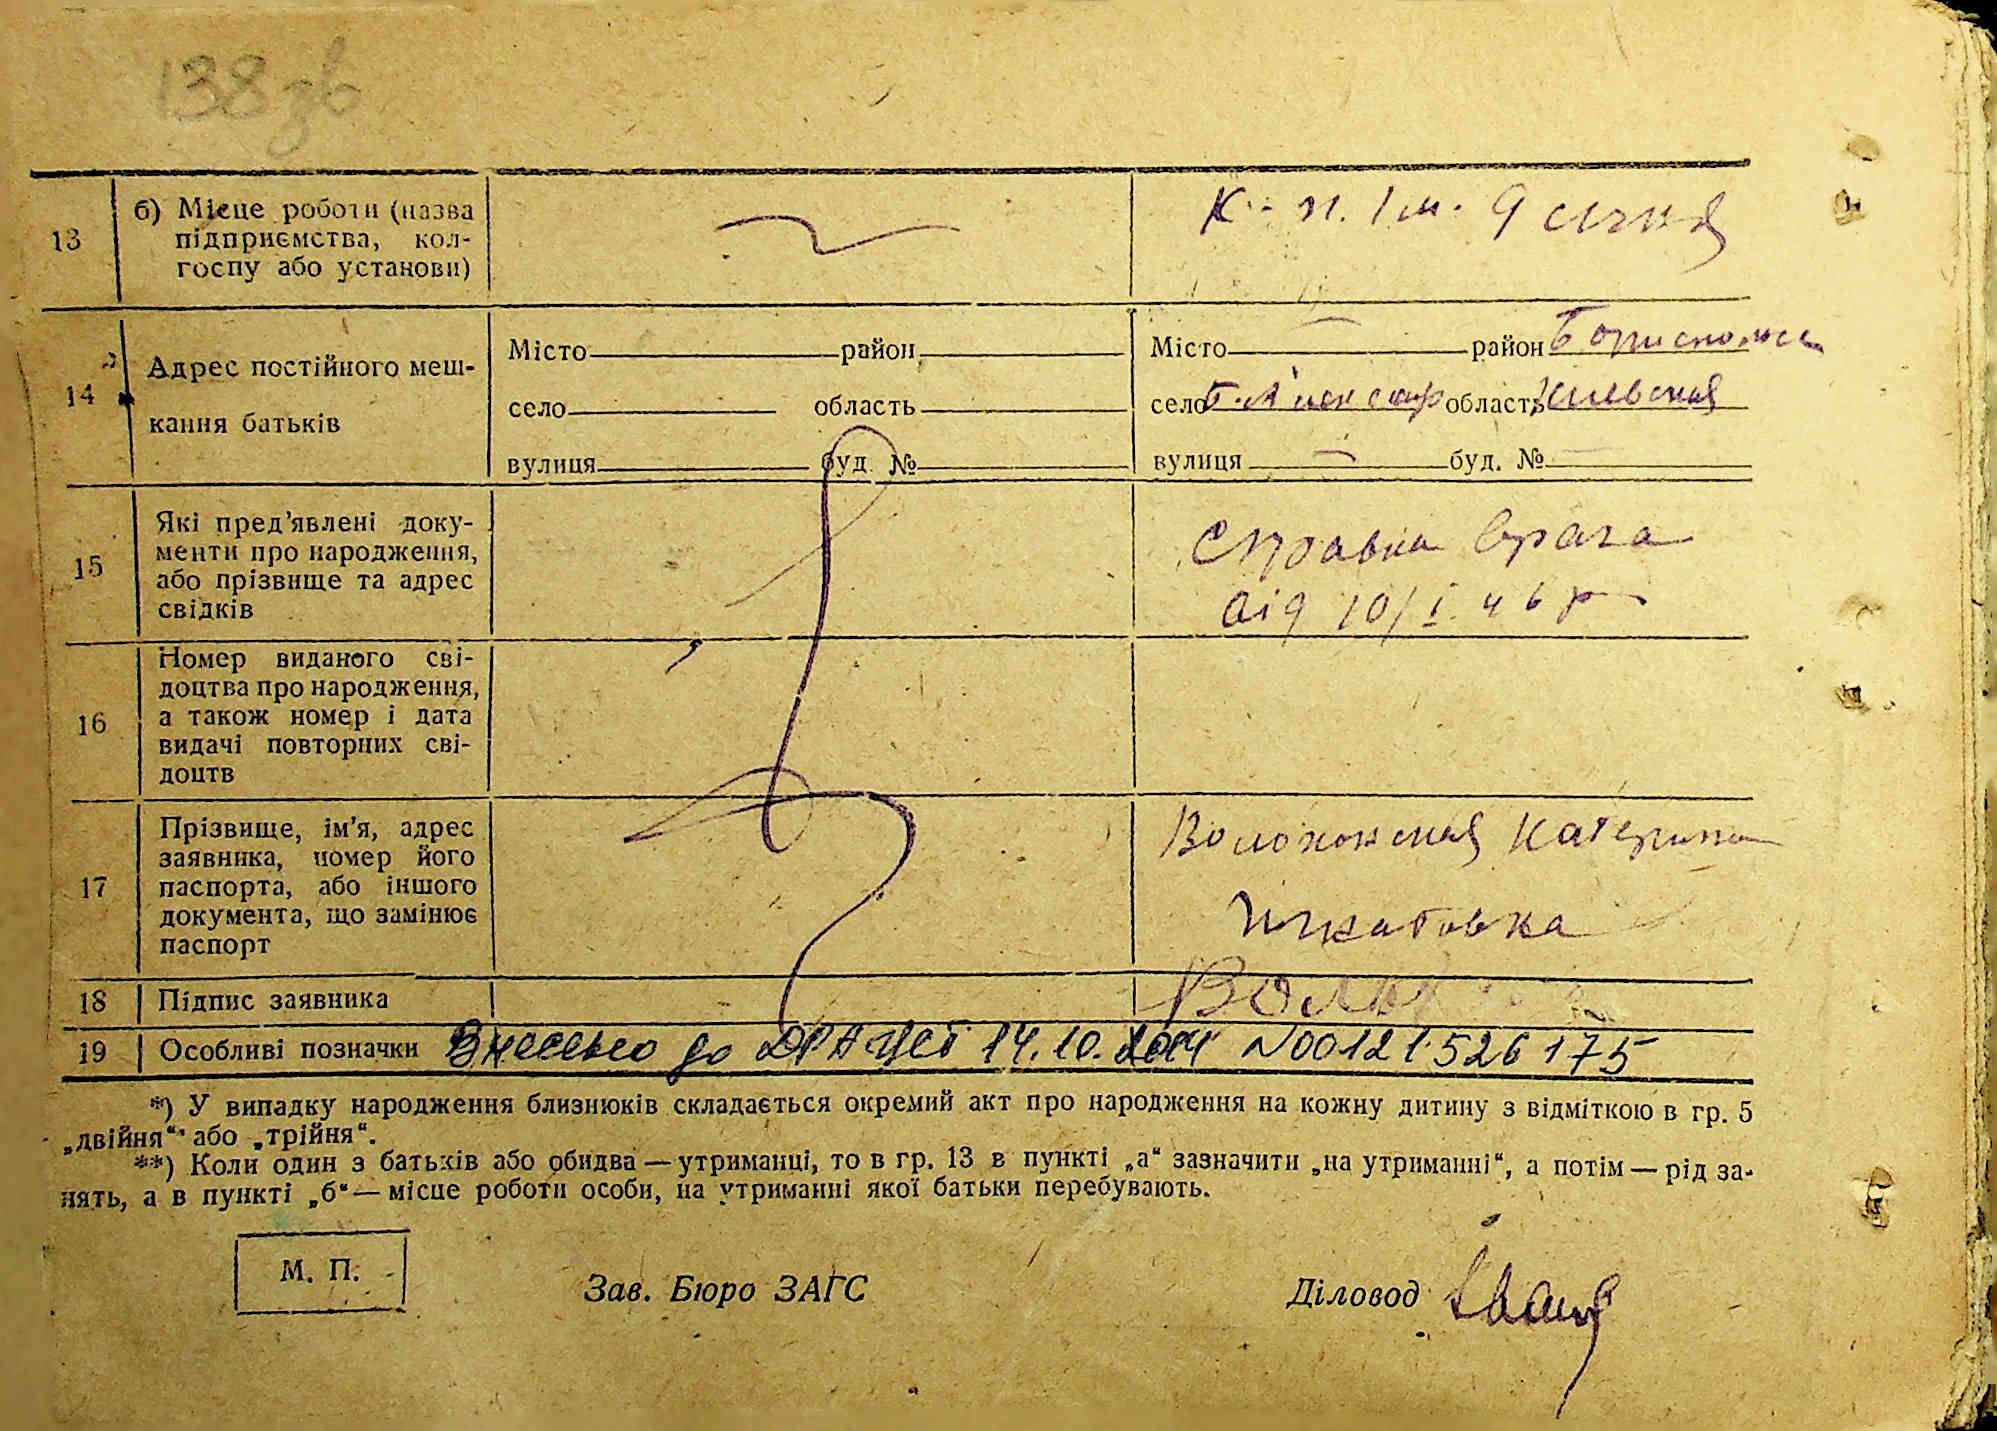 138зв
13
б) Місце роботи (назва
підприємства, кол-
госпу або установи)
К-п. Ім. 9 січня
14
Адрес постійного меш-
кання батьків
Місто район
село область
вулиця буд. №
Місто район Борисполск
село область Київская
вулиця буд. №
15
Які пред’явлені доку-
менти про народження,
або прізвище та адрес
свідків
Справка врача
від 10/I. 46 р
16
Номер виданого сві-
доцтва про народження,
а також номер і дата
видачі повторних сві-
доцтв
17
Прізвище, ім’я, адрес
заявника, номер його
паспорта, або іншого
документа, що замінює
паспорт
Катерина
18
Підпис заявника
19
Особливі позначки Внесено до ДРАЦСГ 14.10.2014 №00121526175
*) У випадку народження близнюків складається окремий акт про народження на кожну дитину з відміткою в гр. 5
„двійня“ або „трійня“.
**) Коли один з батьків або обидва — утриманці, то в гр. 13 в пункті „а“ зазначити „на утриманні“, а потім — рід за-
нять, а в пункті „б“ — місце роботи особи, на утриманні якої батьки перебувають.
М. П.
Зав. Бюро ЗАГС
Діловод